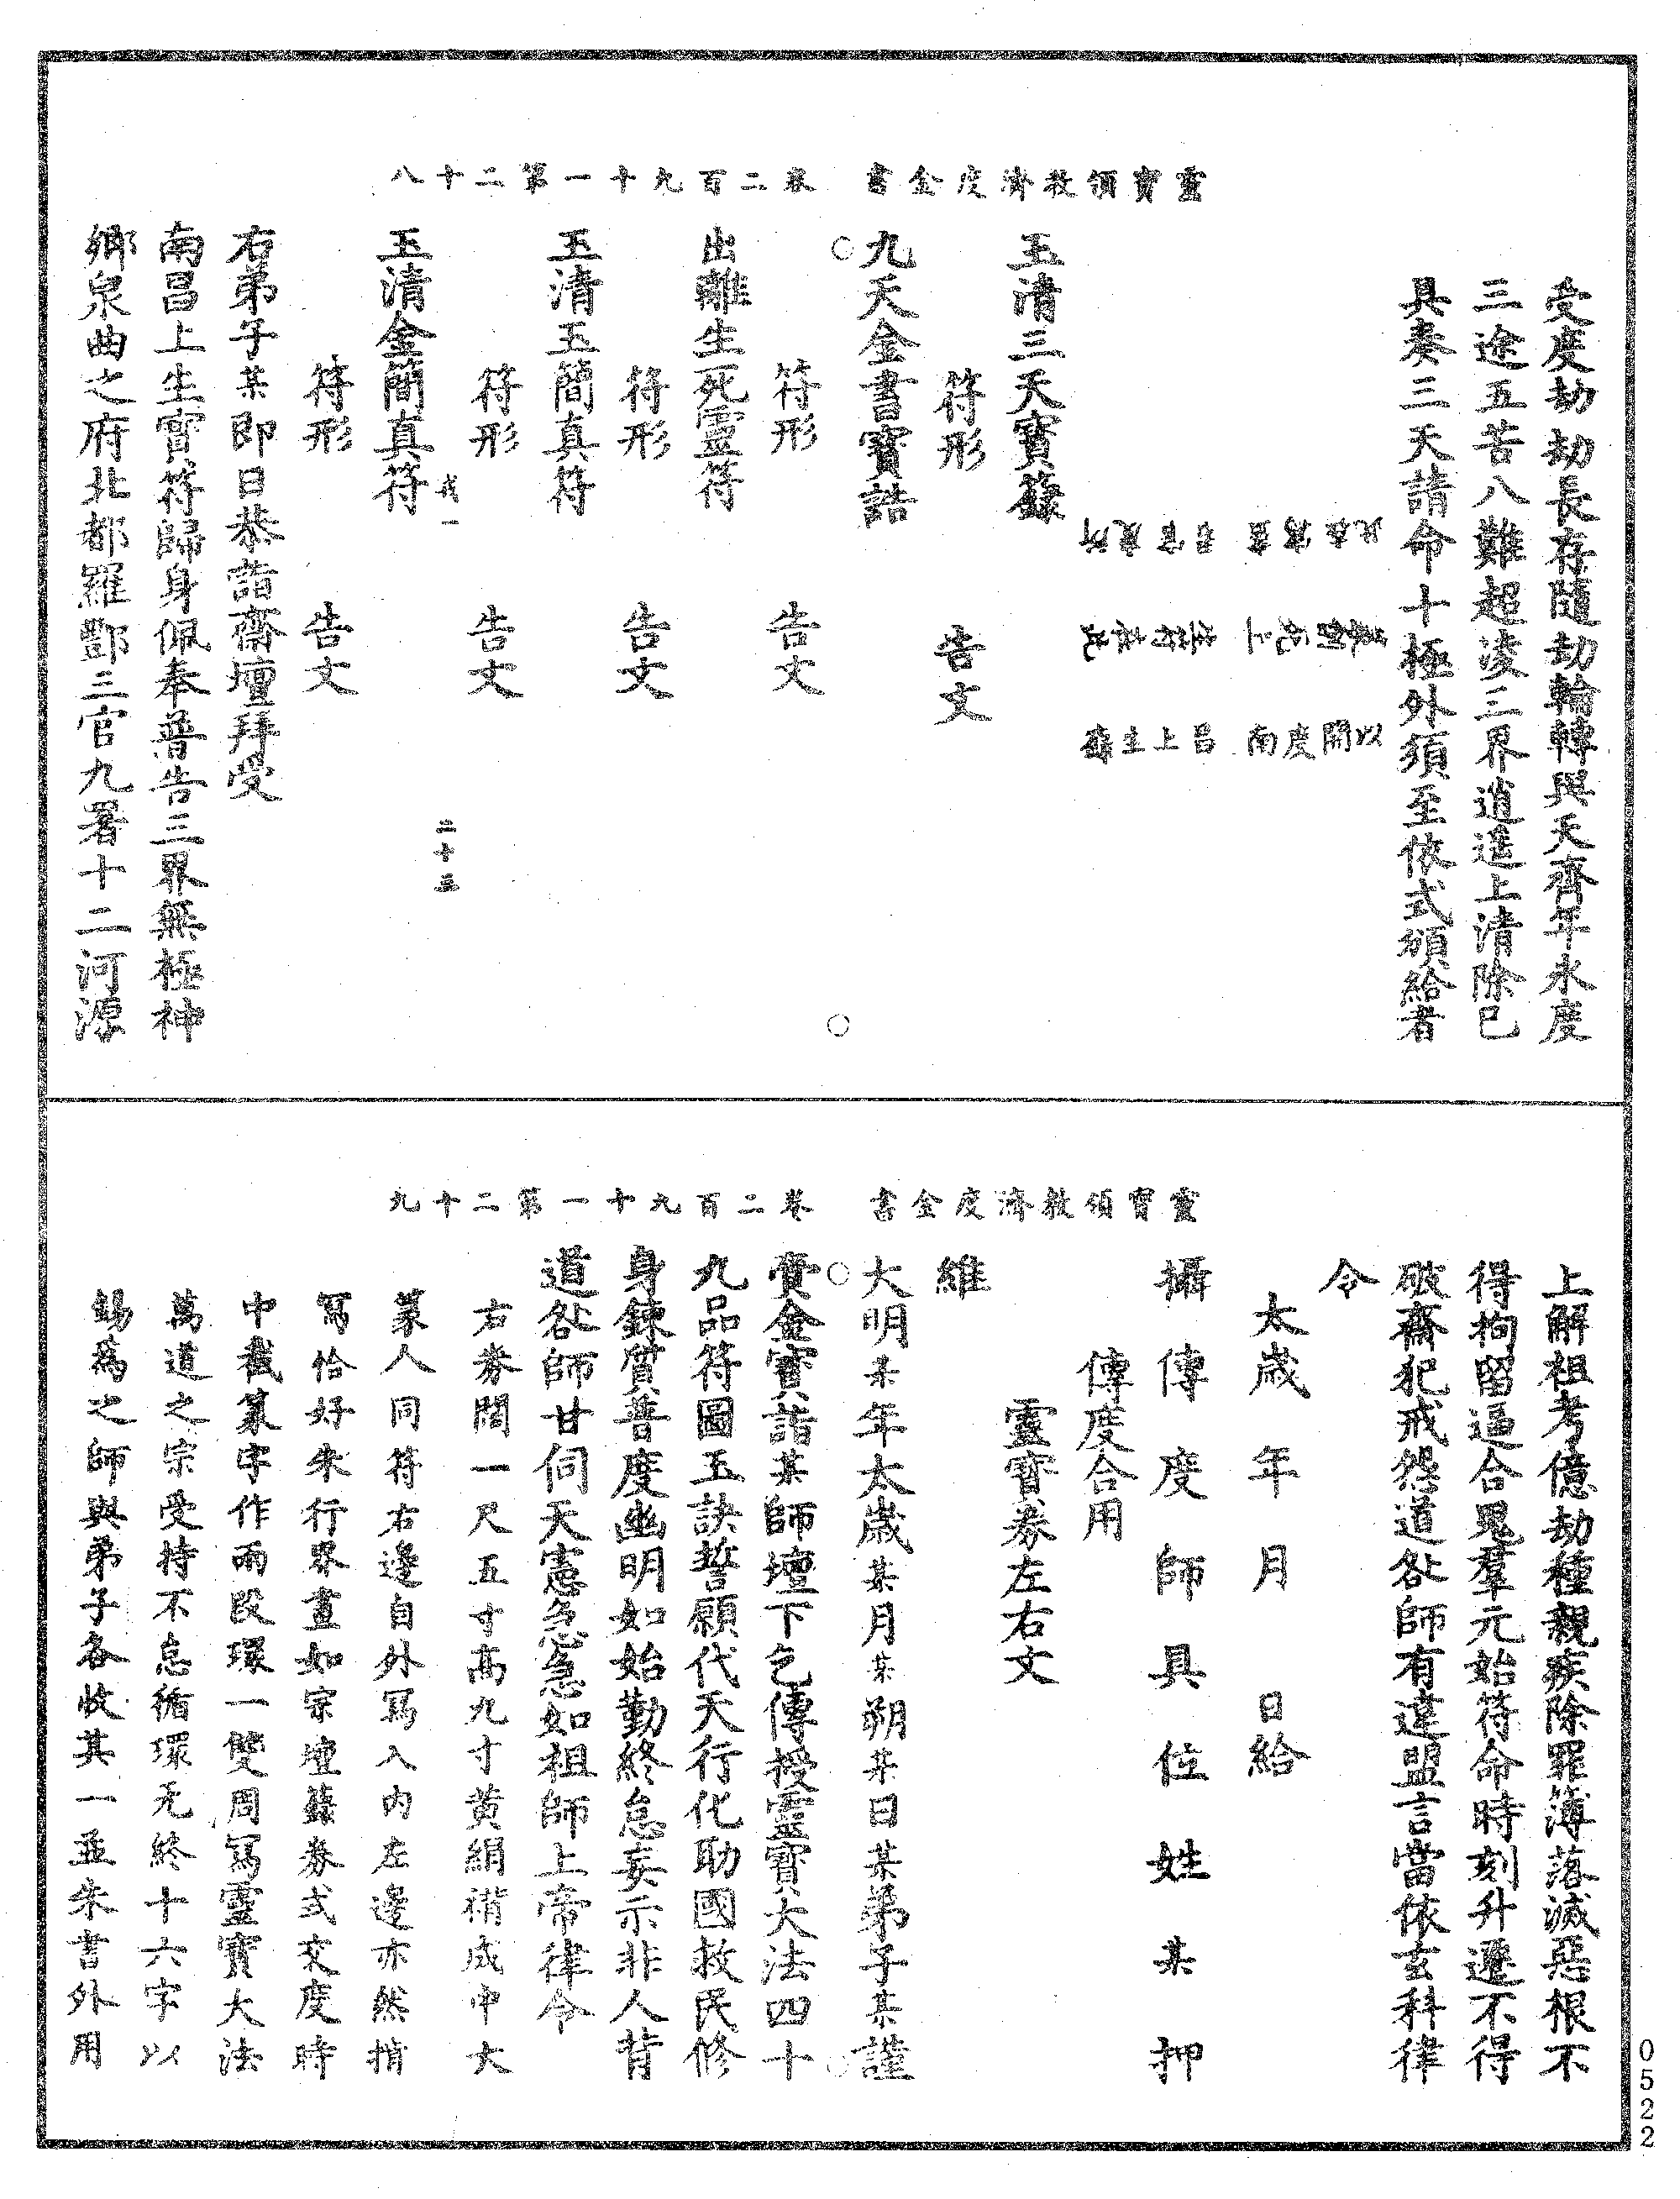 靈寶領教濟度金書　卷二百九十一第二十八
受度劫劫長存隨劫輪轉與天齊年永度
三途五苦八難超凌三界逍遙上清除已
具奏三天請命十極外須至依式頒給者
以
開
度
南
昌
上
生
籙
玉清三天寶籙
符形　告文
九天金書寶誥
符形　告文
出離生死靈符
符形　告文
玉清玉簡真符
符形　告文
二十三
玉清金簡真符
符形　告文
右弟子某即日恭詣齋壇拜受
南昌上生寶符歸身佩奉普告三界無極神
鄉泉曲之府北都羅酆三官九署十二河源
靈寶領教濟度金書　卷二百九十一第二十九
上解祖考億劫種親疾除罪簿落滅惡根不
得拘留逼合鬼羣元始符命時刻升遷不得
破齋犯戒怨道咎師有違盟言當依玄科律
令
太歲　年　月　日給
攝傳度師具位姓某押
傳度合用
靈寶券左右文
維
大明某年太歲某月某朔某日某弟子某謹
賫金寶詣某師壇下乞傳授靈寶大法四十
九品符圖玉訣誓願代天行化助國救民修
身鍊質普度幽明如始勤終怠妄示非人背
道咎師甘伺天憲急急如祖師上帝律令
右券闊一尺五寸高九寸黃絹褙成中大
篆人同符右邊自外寫入內左邊亦然揹
寫恰好朱行界畫如宗壇籙券式交度時
中截篆字作兩段環一雙周寫靈寶大法
萬道之宗受持不怠循環无終十六字以
錫爲之師與弟子各收其一並朱書外用
0522